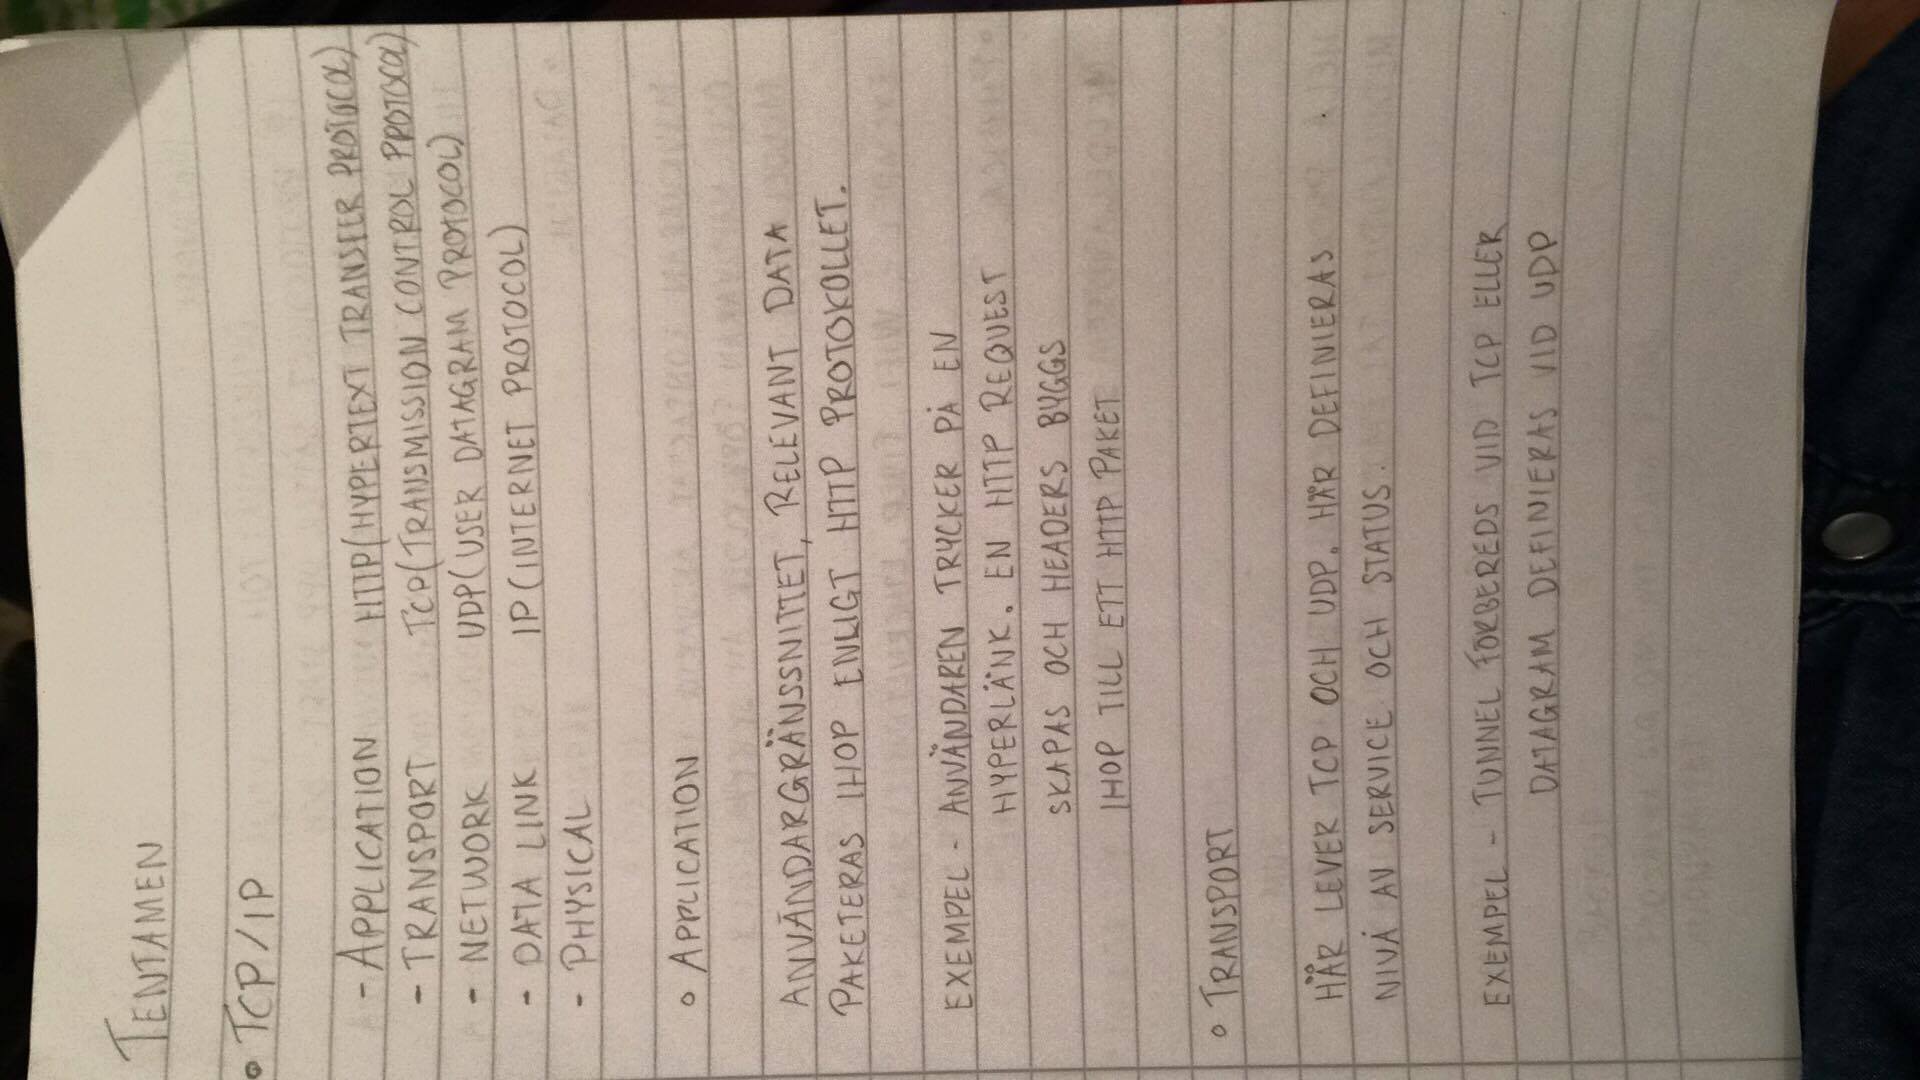 TENTAMEN
• TCP/IP
- APPLICATION HTTP(HYPERTEXT TRANSFER PROTOCOL)
- TRANSPORT TCP(TRANSMISSION CONTROL PROTOCOL)
- NETWORK UDP(USER DATAGRAM PROTOCOL)
- DATA LINK IP(INTERNET PROTOCOL)
- PHYSICAL
○ APPLICATION
ANVÄNDARGRÄNSSNITTET, RELEVANT DATA
PAKETERAS IHOP ENLIGT HTTP PROTOKOLLET.
EXEMPEL - ANVÄNDAREN TRYCKER PÅ EN
HYPERLÄNK. EN HTTP REQUEST
SKAPAS OCH HEADERS BYGGS
IHOP TILL ETT HTTP PAKET
○ TRANSPORT
HÄR LEVER TCP OCH UDP. HÄR DEFINIERAS
NIVÅ AV SERVICE OCH STATUS.
EXEMPEL - TUNNEL FÖRBEREDS VID TCP ELLER
DATAGRAM DEFINIERAS VID UDP